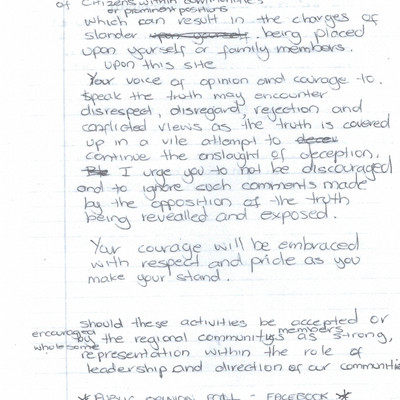 of Citizens within communities
or prominent positions
which can result in the charges of
slander upon yourself being placed
upon yourself or family members.
upon this site
Your voice of opinion and courage to
speak the truth may encounter
disrespect, disregard, rejection and
conflicted views as the truth is covered
up in a vile attempt to
continue the onslaught of deception.
I urge you to not be discouraged
and to ignore such comments made
by the opposition of the truth
being revealled and exposed.
Your courage will be embraced
with respect and pride as you
make your stand.
should these activities be accepted or
encouraged by the regional communitys members as strong,
wholesome representation within the role of
leadership and direction of our communities
*PUBLIC OPINION POLL - FACEBOOK *